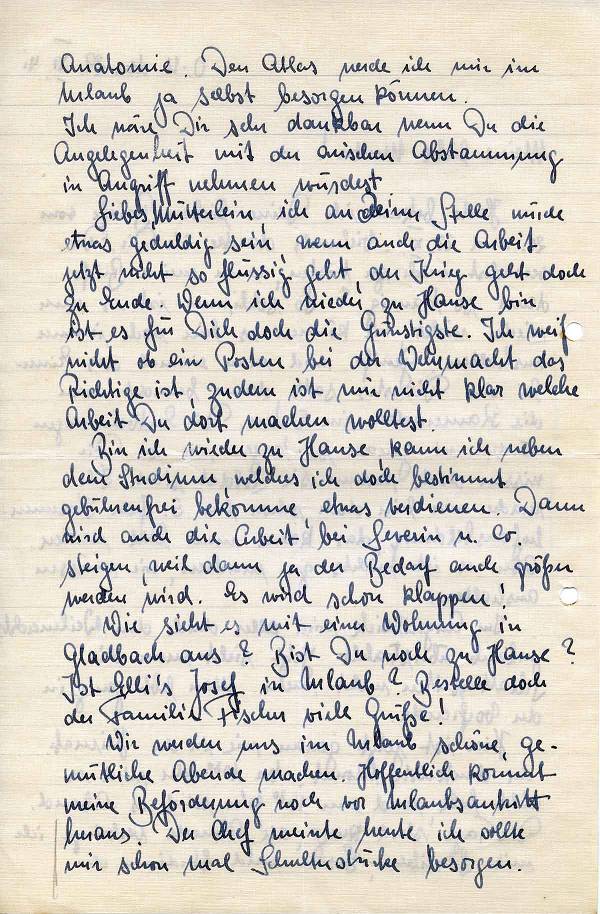 Anatomie. Den Atlas werde ich mir im
Urlaub ja selbst besorgen können.
Ich wäre Dir sehr dankbar wenn Du die
Angelegenheit mit der arischen Abstammung
in Angriff nehmen würdest.
Liebes Mütterlein, ich an Deiner Stelle würde
etwas geduldig sein, wenn auch die Arbeit
jetzt nicht so flüssig geht, der Krieg geht doch
zu Ende. Wenn ich wieder zu Hause bin
ist es für Dich doch die Günstigste. Ich weiß
nicht ob ein Posten bei der Wehrmacht das
Richtige ist, zudem ist mir nicht klar welche
Arbeit Du dort machen wolltest.
Bin ich wieder zu Hause, kann ich neben
dem Studium, welches ich doch bestimmt
gebührenfrei bekomme, etwas verdienen. Dann
wird auch die Arbeit, bei Severin u. Co.
steigen, weil dann ja der Bedarf auch größer
werden wird. Es wird schon klappen!
Wie sieht es mit einer Wohnung in
Gladbach aus? Bist Du noch zu Hause?
Ist Elli's Josef in Urlaub? Bestelle doch
der Familie Fischer viele Grüße!
Wir werden uns im Urlaub schöne, ge-
mütliche Abende machen. Hoffentlich kommt
meine Beförderung noch vor Urlaubsantritt
heraus. Der Chef meinte heute ich sollte
mir schon mal Schulterstücke besorgen.